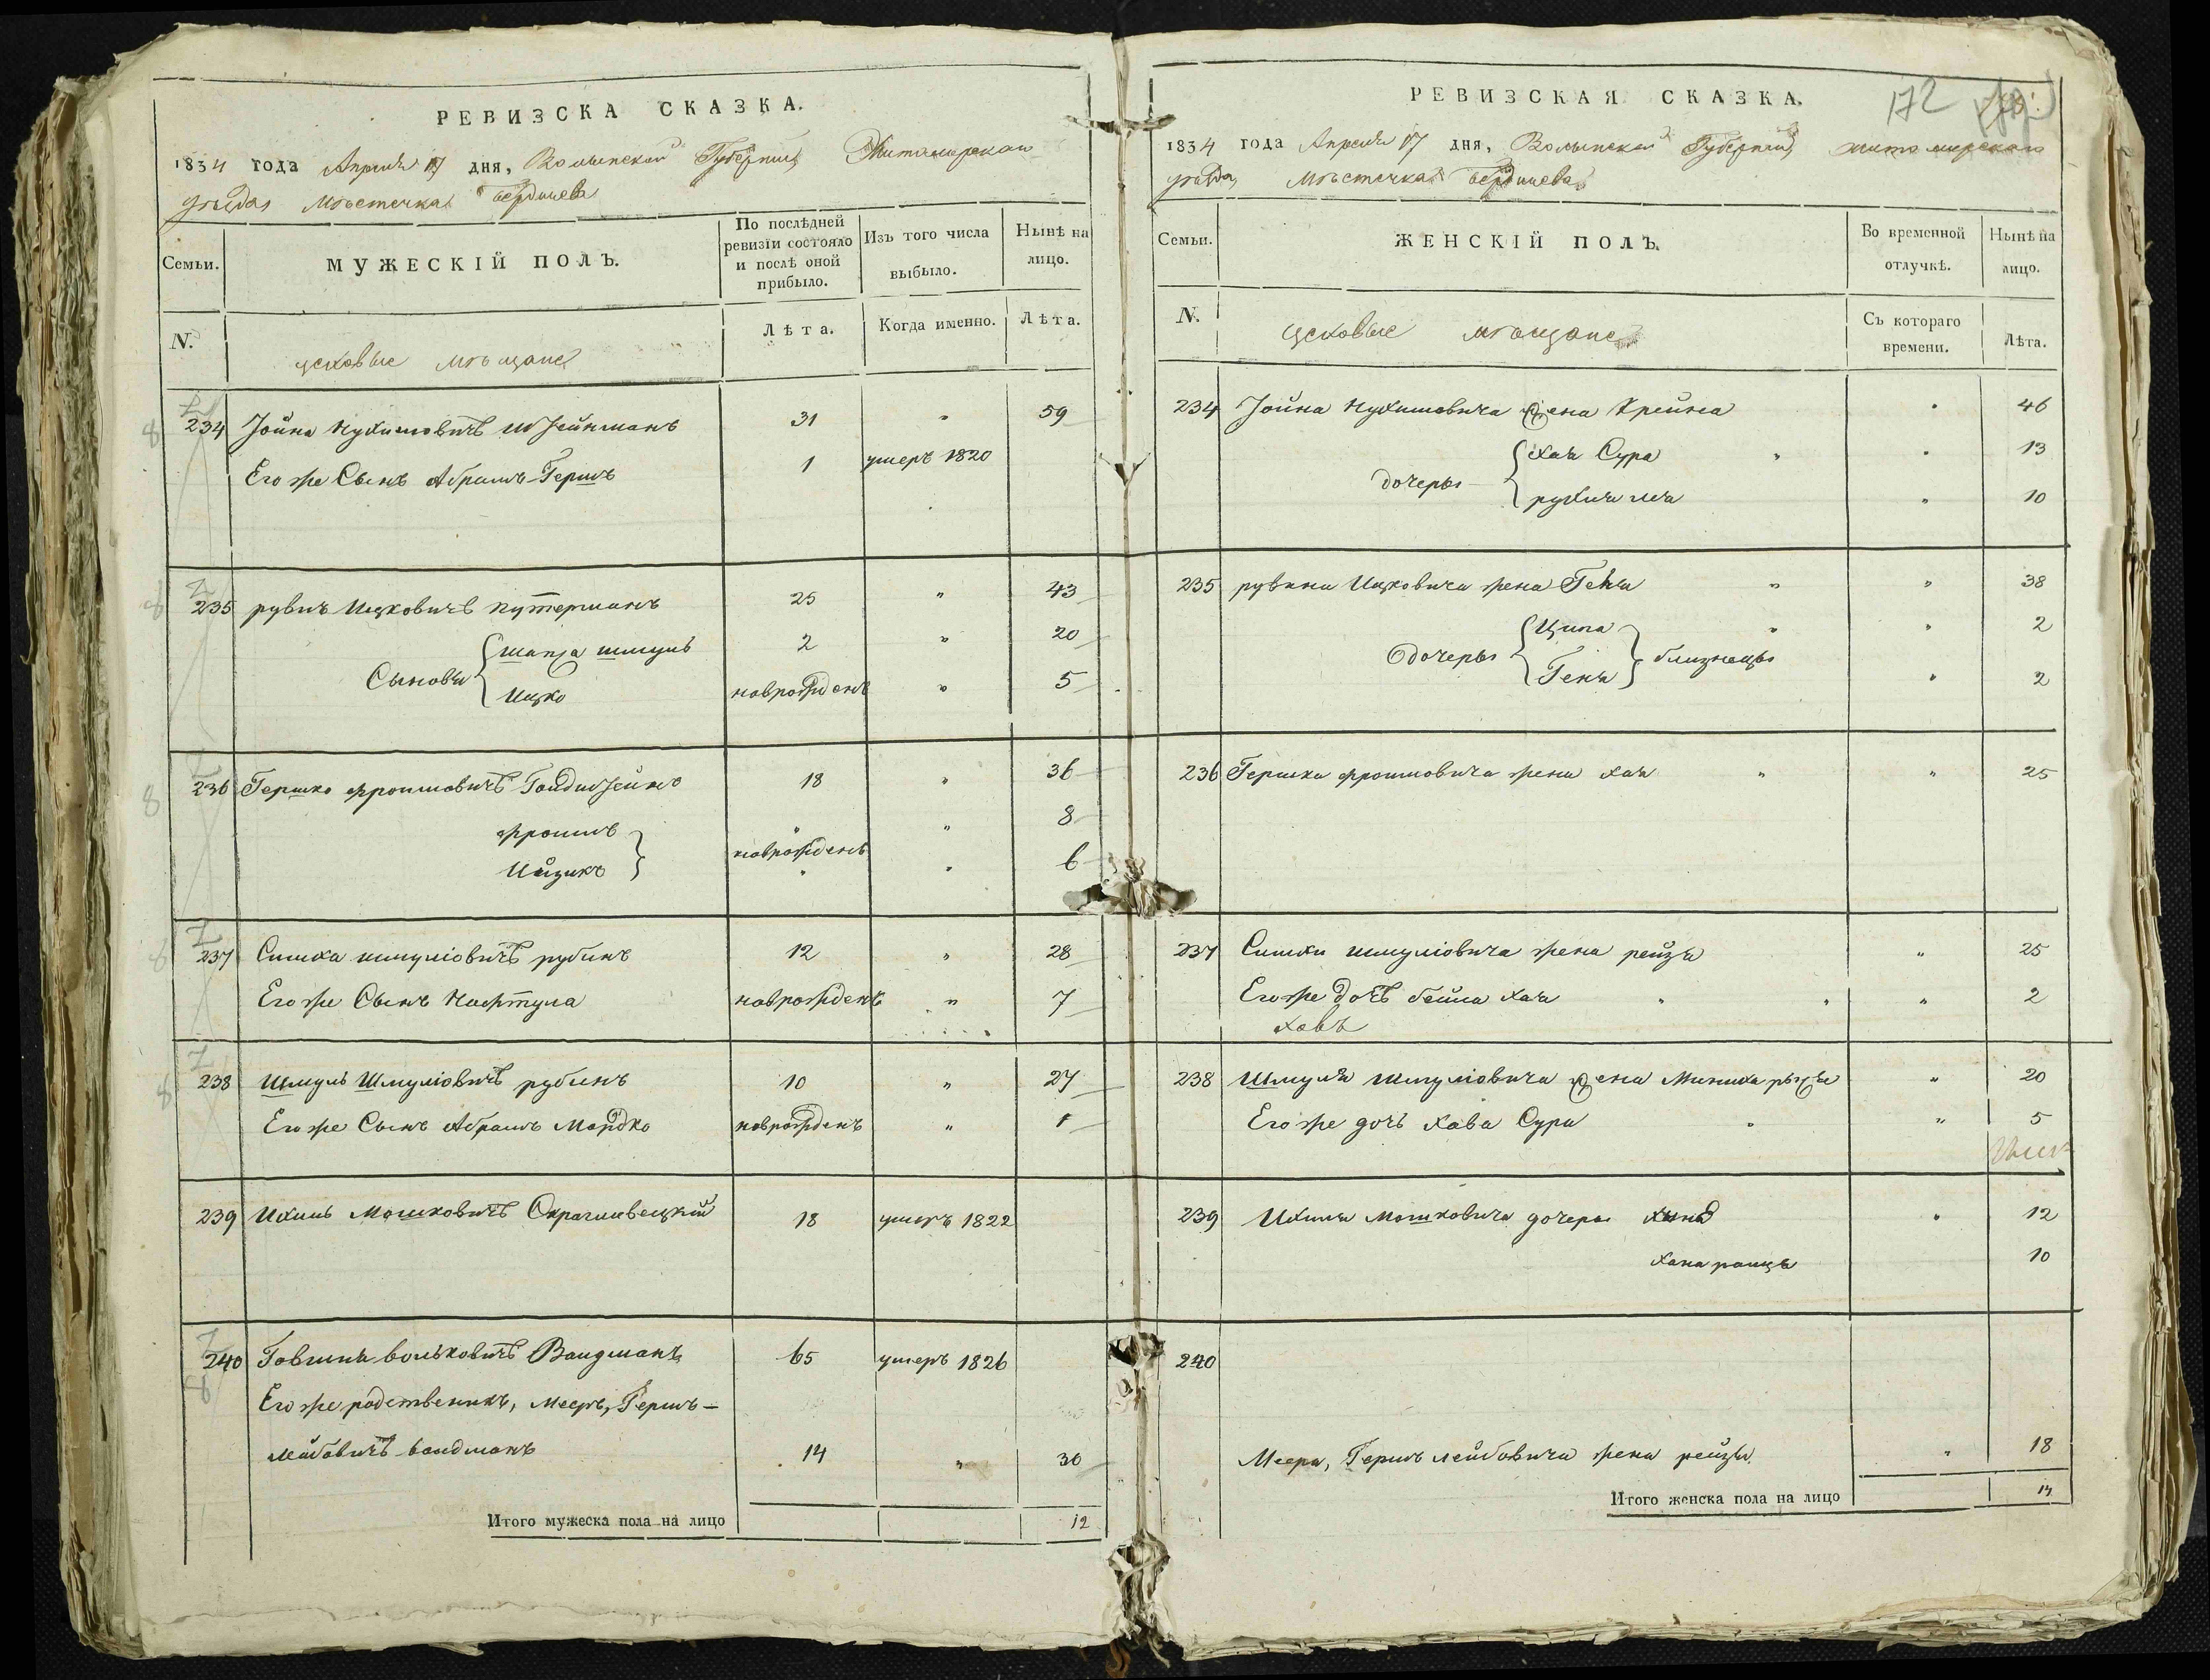 РЕВИЗСКА СКАЗКА.
1834 года Апреля 17 дня, Волынской Губернии, Житомирскаго
уѣзда, Мѣстечка Бердичева
Семьи.
МУЖЕСКІЙ ПОЛЪ.
По послѣдней ревизіи состояло и послѣ оной прибыло.
Изъ того числа выбыло.
Нынѣ на лицо.
N.
мѣщане
Лѣта.
Когда именно.
Лѣта.
234 Іойна Нухимовичъ 31 " 59
Его же Сынъ Абрамъ-Гершъ 1 умеръ 1820
235 рувинъ Ицковичъ путерманъ 25 " 43
Сыновья шмуль 2 " 20
Ицко новрожденъ " 5
236 Гершко Фроимовичъ 18 " 36
Фроимъ " " 8
Ицикъ новрожденъ " 6
237 Симха шмуліовичъ рубинъ 12 " 28
Его же Сынъ Нафтула новрожденъ " 7
238 Шмуль Шмуліовичъ рубинъ 10 " 27
Его же Сынъ Абрамъ Мордко новрожденъ " 1
239 Ихиль Мошковичъ 18 умеръ 1822
240 вольковичъ Вандманъ 65 умеръ 1826
Его же родственикъ, Мееръ, Гершъ-
лейбовичъ вандманъ 14 " 30
Итого мужеска пола на лицо 12
РЕВИЗСКАЯ СКАЗКА.
172
1834 года Апреля 17 дня, Волынской Губерніи, житомирскаго
уѣзда, Мѣстечка Бердичева
Семьи.
ЖЕНСКІЙ ПОЛЪ.
Во временной отлучкѣ.
Нынѣ на лицо.
N.
мѣщане
Съ котораго времени.
Лѣта.
234 Іойна Нухимовича жена Крейна " 46
дочеры Хая Сура " 13
рухля лея " 10
235 рувина Ицковича жена Геня " 38
дочеры Ципа " 2
Геня близнецы " 2
236 Гершка Фроимовича жена хая " 25
237 Симхи шмуліовича жена рейзя " 25
Его же дочъ бейла хая " 2
238 Шмуля шмуліовича жена " 20
Его же дочь хава Сура " 5
239 Ихиля Мошковича дочеры " 12
хана 10
240
Меера, Гершъ лейбовича жена рейзя " 18
Итого женска пола на лицо 14